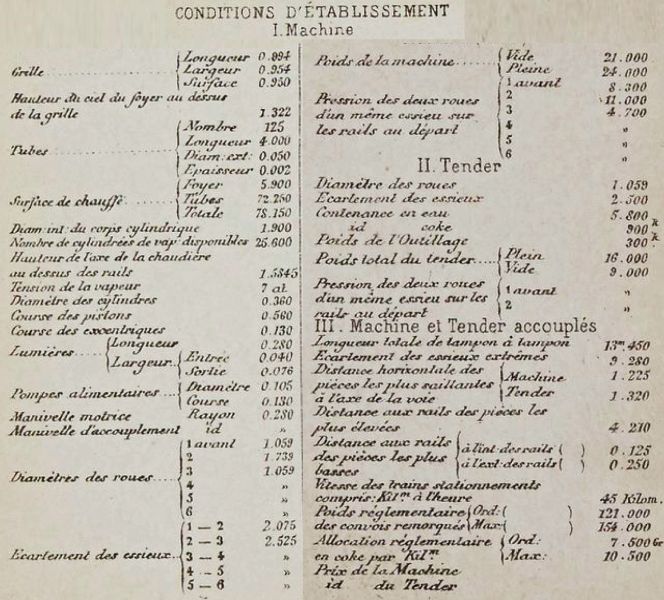 CONDITIONS D'ÉTABLISSEMENT
I. Machine
Grille { Longueur 0.994
Largeur 0.954
Surface 0.950
Hauteur du ciel du foyer au dessus
de la grille 1.322
Tubes { Nombre 125
Longueur 4.000
Diam. ext: 0.050
Epaisseur 0.002
Surface de chauffe { Foyer 5.900
Tubes 72.250
Totale 78.150
Diam: int: du corps cylindrique 1.900
Nombre de cylindrées de vap: disponibles 25.600
Hauteur de l'axe de la chaudière
au dessus des rails 1.5845
Tension de la vapeur 7 at.
Diamètre des cylindres 0.360
Course des pistons 0.560
Course des excentriques 0.130
Lumières { Longueur 0.280
Largeur { Entrée 0.040
Sortie 0.076
Pompes alimentaires { Diamètre 0.105
Course 0.130
Manivelle motrice Rayon 0.280
Manivelle d'accouplement id "
Diamètres des roues { 1 avant 1.059
2 1.739
3 1.059
4 "
5 "
6 "
Ecartement des essieux { 1 — 2 2.075
2 — 3 2.525
3 — 4 "
4 — 5 "
5 — 6 "
Poids de la machine { Vide 21.000
Pleine 24.000
Pression des deux roues
d'un même essieu sur
les rails au départ { 1 avant 8.300
2 11.000
3 4.700
4 "
5 "
6 "
II. Tender
Diamètre des roues 1.059
Ecartement des essieux 2.500
Contenance en eau 5.800 k
id coke 900 k
Poids de l'Outillage 300
Poids total du tender { Plein 16.000
Vide 9.000
Pression des deux roues
d'un même essieu sur les
rails au départ { 1 avant "
2 "
III. Machine et Tender accouplés
Longueur totale de tampon à tampon 13m 450
Ecartement des essieux extrêmes 9.280
Distance horizontale des
pièces les plus saillantes
à l'axe de la voie { Machine 1.225
Tender 1.320
Distance aux rails des pièces les
plus élevées 4.210
Distance aux rails
des pièces les plus
basses { à l'int: des rails ( ) 0.125
à l'ext: des rails ( ) 0.250
Vitesse des trains stationnements
compris: Kilm à l'heure 45 Kilom.
Poids réglementaire
des convois remorqués { Ord: ( ) 121.000
Max: ( ) 154.000
Allocation réglementaire
en coke par Kilm { Ord: 7.500 Gr
Max: 10.500
Prix de la Machine
id du Tender